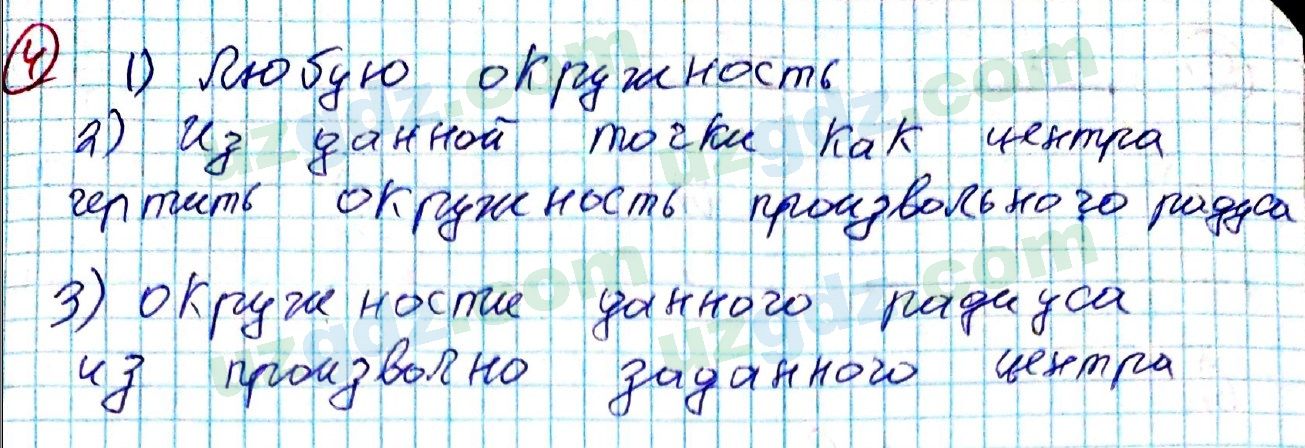 4 1) Любую окружность
2) Из данной точки как центра
чертить окружность произвольного радуса
3) окружности данного радиуса
из произволно заданного центра